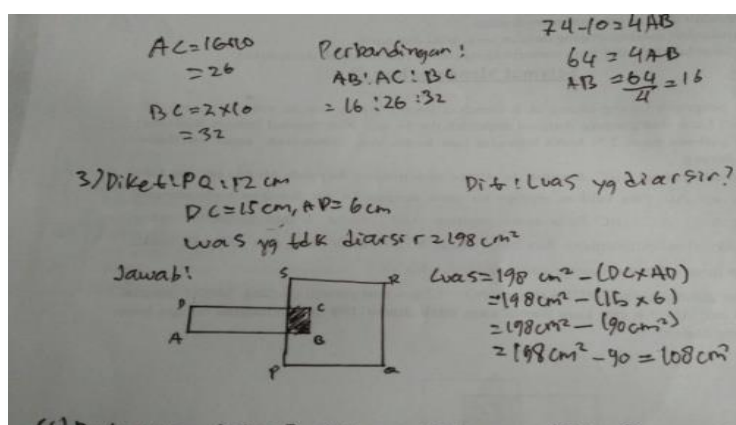 AC=16+10
=26
BC=2×16
=32
Perbandingan :
AB:AC:BC
=16:26:32
74-10=4AB
64=4AB
AB=64/4=16
3) Diket: PQ: 12 cm
DC=15cm, AD=6cm
Luas yg tdk diarsir=198cm²
Dit: Luas yg diarsir?
Jawab:
S
R
D
C
A
B
P
Q
Luas=198 cm²-(DCxAD)
=198cm²-(15 x 6)
=198cm²-(90cm²)
=198cm²-90=108cm²